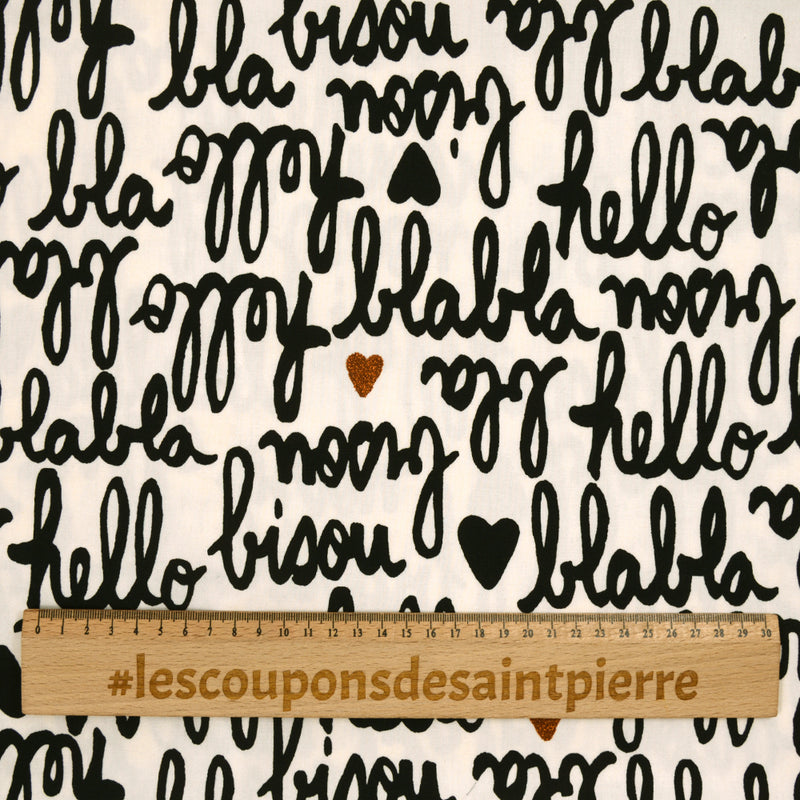 bla bisou bla blab
bisou
bla hello hello bla
bla hello blabla bisou
bla hello
blabla bisou
hello bisou blabla
0 1 2 3 4 5 6 7 8 9 10 11 12 13 14 15 16 17 18 19 20 21 22 23 24 25 26 27 28 29 30
#lescouponsdesaintpierre
bisou